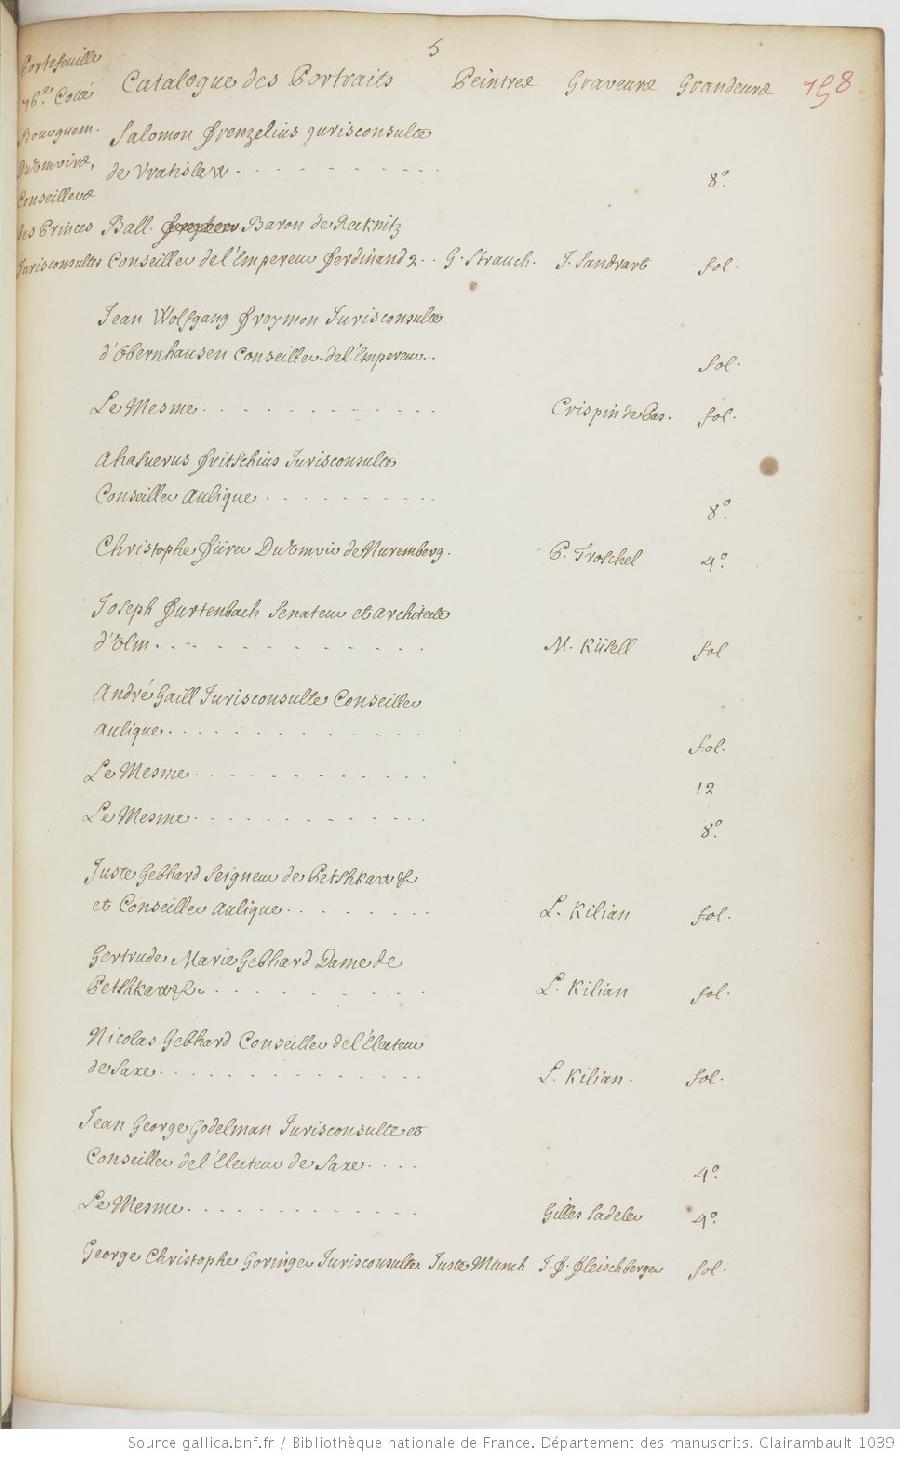 5
Portefeuille
76.e Cotté
Bourguem.
Duumvirs,
Conseillers
des Princes
Jurisconsultes
Catalogue des Portraits Peintres Graveurs Grandeurs 198
Salomon Frenzelius jurisconsulte
de Vratislaw 8.o
Ball. Baron de Recknitz
Conseiller de l'Empereur Ferdinand 2. G. Strauch. J. Sandrart fol.
Jean Wolfgang Freymon Jurisconsulte
d'Obernhausen Conseiller de l'Empereur fol.
Le Mesme Crispin de Pas. fol.
Ahasuerus Fritschius Jurisconsulte
Conseiller Aulique 8.o
Christophe Fürer Duumvir de Nuremberg. P. Troschel 4.o
Joseph Furtenbach Senateur et architecte
d'Ulm M. Küsell fol
André Gaill Jurisconsulte Conseiller
Aulique fol.
Le Mesme 12
Le Mesme 8.o
Juste Gebhard Seigneur de
et Conseiller Aulique L. Kilian fol.
Gertrude Marie Gebhard Dame de
L. Kilian fol.
Nicolas Gebhard Conseiller de l'Electeur
de Saxe L. Kilian. fol.
Jean George Godelman Jurisconsulte et
Conseiller de l'Electeur de Saxe 4.o
Le Mesme Gilles Sadeler 4.o
George Christophe Goringer Jurisconsulte Juste Munch J. F. Fleischberger fol.
Source gallica.bnf.fr / Bibliothèque nationale de France. Département des manuscrits. Clairambault 1039